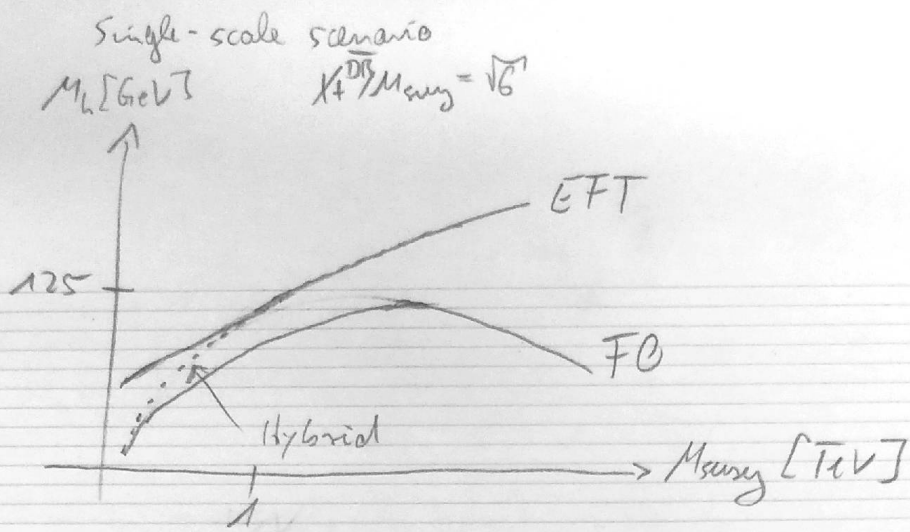 Single-scale scenario
M_h [GeV]
X_t^{\overline{DR}}/M_{susy} = √6
EFT
125
FO
Hybrid
M_{susy} [TeV]
1